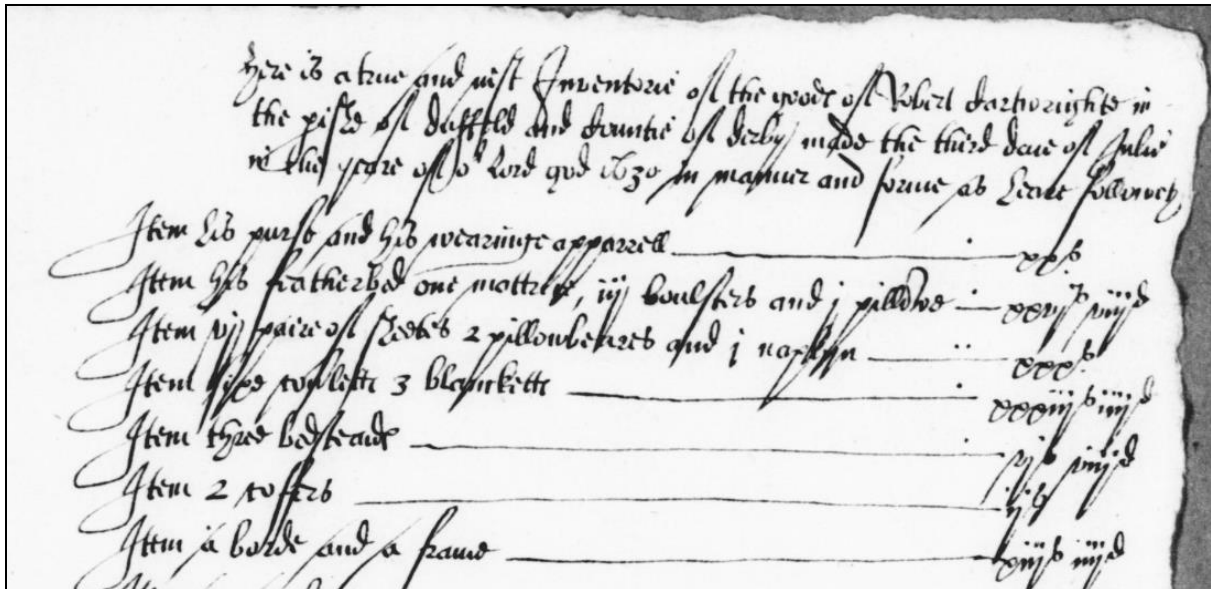 here is a true and just Inventorie of the goods of Robert Cartwrighte in
the pishe of duffeld and Countie of derby made the third daie of Julie
in the yeare of or Lord god 1630 in manner and forme as heare followeth
Item his purse and his wearinge apparrell xxs
Item his featherbed one mattresse, iij boulsters and j pillowe xxvjs viijd
Item vij paire of sheetes 2 pillowbeares and j napkyn xxxs
Item sixe coverletts 3 blanketts xxxiijs iiijd
Item three bedsteads vjs viijd
Item 2 coffers ijs
Item a borde and a frame xiijs iiijd